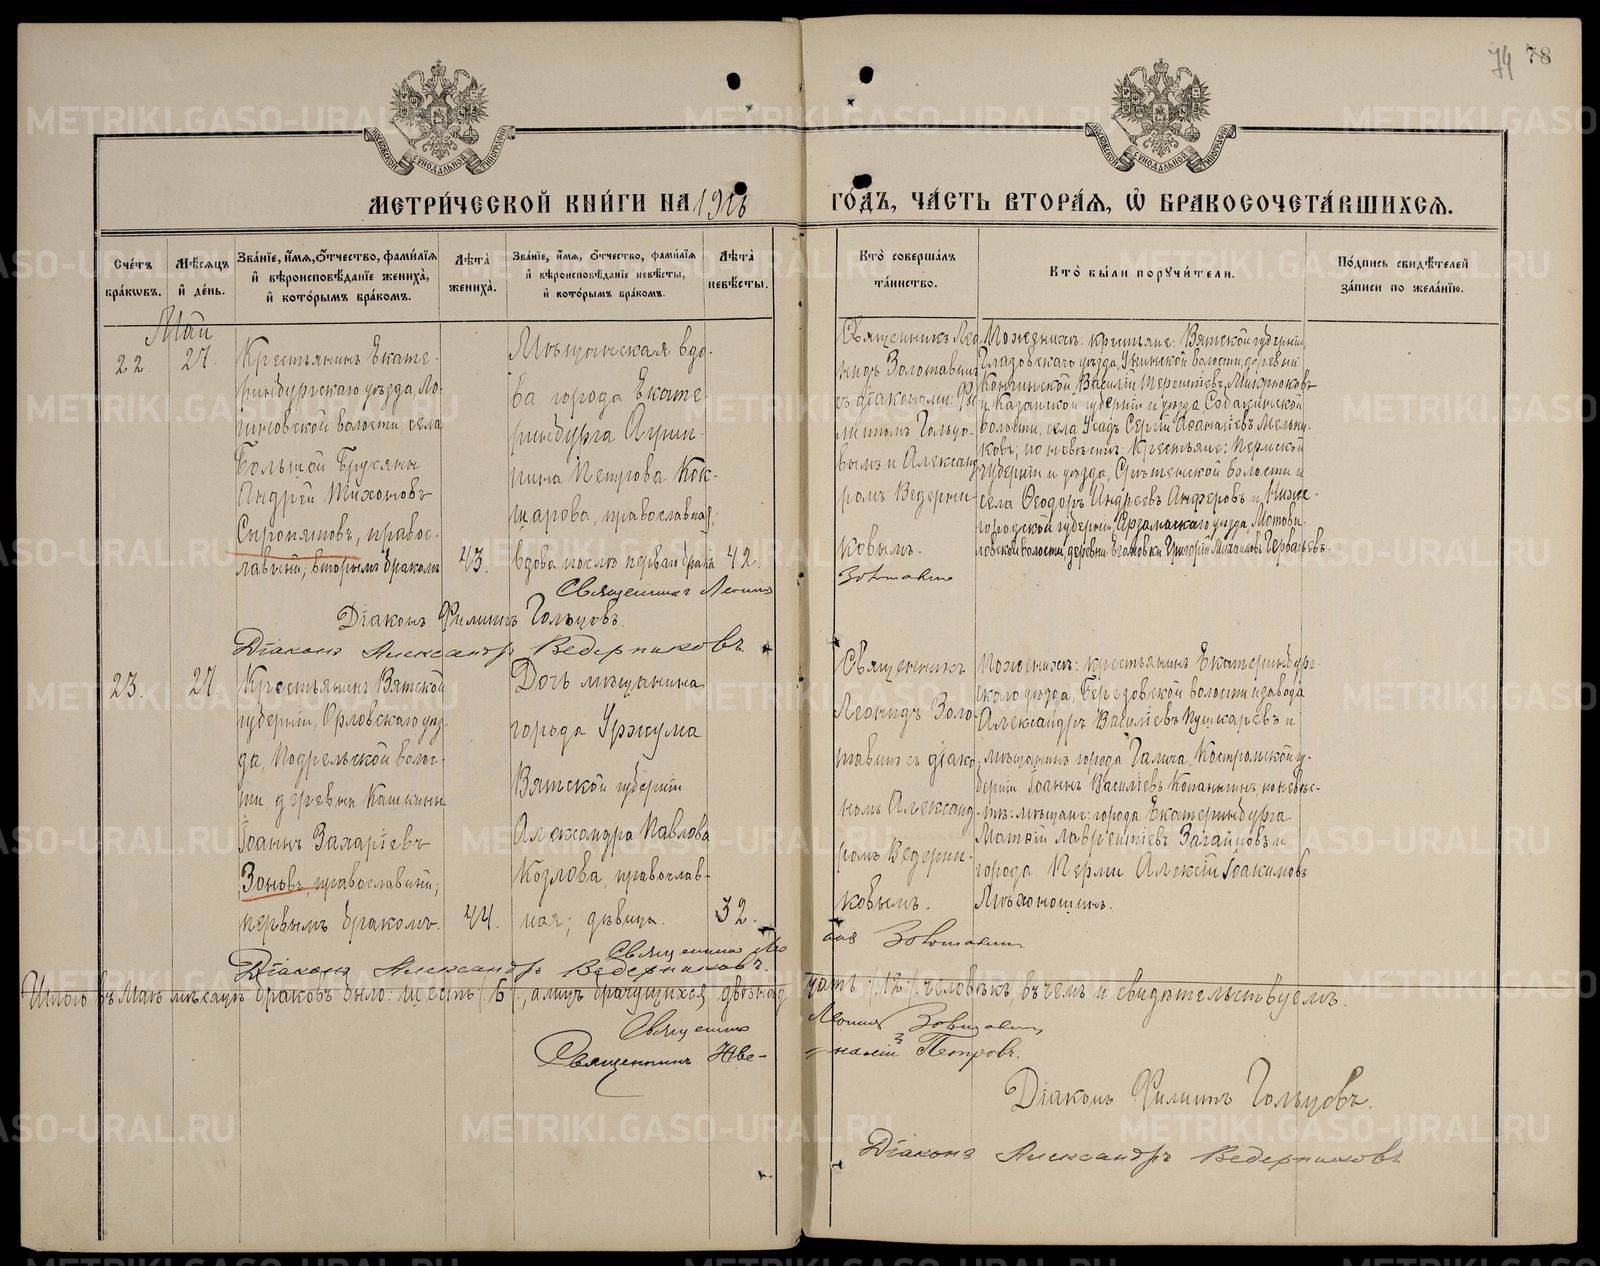 74 78
МОСКОВСКОЙ СѴНОДАЛЬНОЙ ТИПОГРАФІИ
МОСКОВСКОЙ СѴНОДАЛЬНОЙ ТИПОГРАФІИ
МЕТРИ́ЧЕСКОЙ КНИ́ГИ НА 1916 ГО́ДЪ, ЧА́СТЬ ВТОРА́Я, Ѡ БРАКОСОЧЕТА́ВШИХСЯ.
Сче́тъ
бра́кѡвъ.
Мѣ́сяцъ
и́ де́нь.
Зва́нїе, и́мя, ѻ́тчество, фами́лїя
и́ вѣроисповѣ́данїе жениха̀,
и́ кото́рымъ бра́комъ.
Лѣ́та̀
жениха̀.
Зва́нїе, и́мя, ѻ́тчество, фами́лїя
и́ вѣроисповѣ́данїе невѣ́сты,
и́ кото́рымъ бра́комъ.
Лѣ́та̀
невѣ́сты.
Кто̀ соверша́лъ
та́инство.
Кто̀ бы́ли пору́чи́тели.
По́дпись свидѣ́телей
за́писи по жела́нїю.
Май
22. 27.
Крестьянинъ Екате-
ринбургскаго уѣзда, Ло-
гиновской волости, села
Большой Брусяны
Андрей Тихоновъ
Сыропятовъ, правос-
лавный; вторымъ бракомъ
43.
Мѣщанская вдо-
ва города Екате-
ринбурга Агрип-
пина Петрова Кок-
шарова, православная;
вдова послѣ перваго брака
42.
Священникъ Лео-
нидъ Золотавинъ
съ діаконами: Фи-
липпомъ Гольцо-
вымъ и Александ-
ромъ Ведерни-
ковымъ.
По женихѣ: крестьяне: Вятской губерніи,
Глазовскаго уѣзда, Унинской волости, деревни
Василій Терентіевъ Микрюковъ
и Казанской губерніи и уѣзда Собакинской
волости, села Усадъ Сергій Аѳанасіевъ Мельни-
ковъ; по невѣстѣ: Крестьяне: Пермской
губерніи и уѣзда, Срѣтенской волости и
села Ѳеодоръ Андреевъ Анферовъ и Ниже-
городской губерніи, Арзамасскаго уѣзда, Мотови-
ловской волости, деревни Григорій Михаиловъ
Священникъ Леонидъ Золотавинъ
Діаконъ Филиппъ Гольцовъ.
Діаконъ Александръ Ведерниковъ.
23. 27.
Крестьянинъ Вятской
губерніи, Орловскаго уѣз-
да, Подрельской волос-
ти деревни Кашнины
Іоаннъ Захаріевъ
Зоновъ, православный;
первымъ бракомъ.
44.
Дочь мѣщанина
города Уржума
Вятской губерніи
Александра Павлова
Козлова, православ-
ная; дѣвица.
32.
Священникъ
Леонидъ Золо-
тавинъ съ діако-
номъ Александ-
ромъ Ведерни-
ковымъ.
По женихѣ: крестьянинъ Екатеринбург-
скаго уѣзда, Березовской волости и завода
Александръ Василіевъ Пушкаревъ и
мѣщанинъ города Галича, Костромской гу-
берніи Іоаннъ Василіевъ Копаныгинъ, по невѣс-
тѣ: мѣщане: города Екатеринбурга
Матѳій Лаврентіевъ Загайновъ и
города Перми Алексій Іоакимовъ
Мѣхоношинъ.
Священникъ Леонидъ Золотавинъ
Діаконъ Александръ Ведерниковъ.
Итого въ Маѣ мѣсяцѣ браковъ было: шесть /6/, а лицъ брачущихся двѣнадцать /12/ человѣкъ, въ чемъ и свидѣтельствуемъ.
Священникъ Леонидъ Золотавинъ
Священникъ Петровъ.
Діаконъ Филиппъ Гольцовъ.
Діаконъ Александръ Ведерниковъ
METRIKI.GASO-URAL.RU